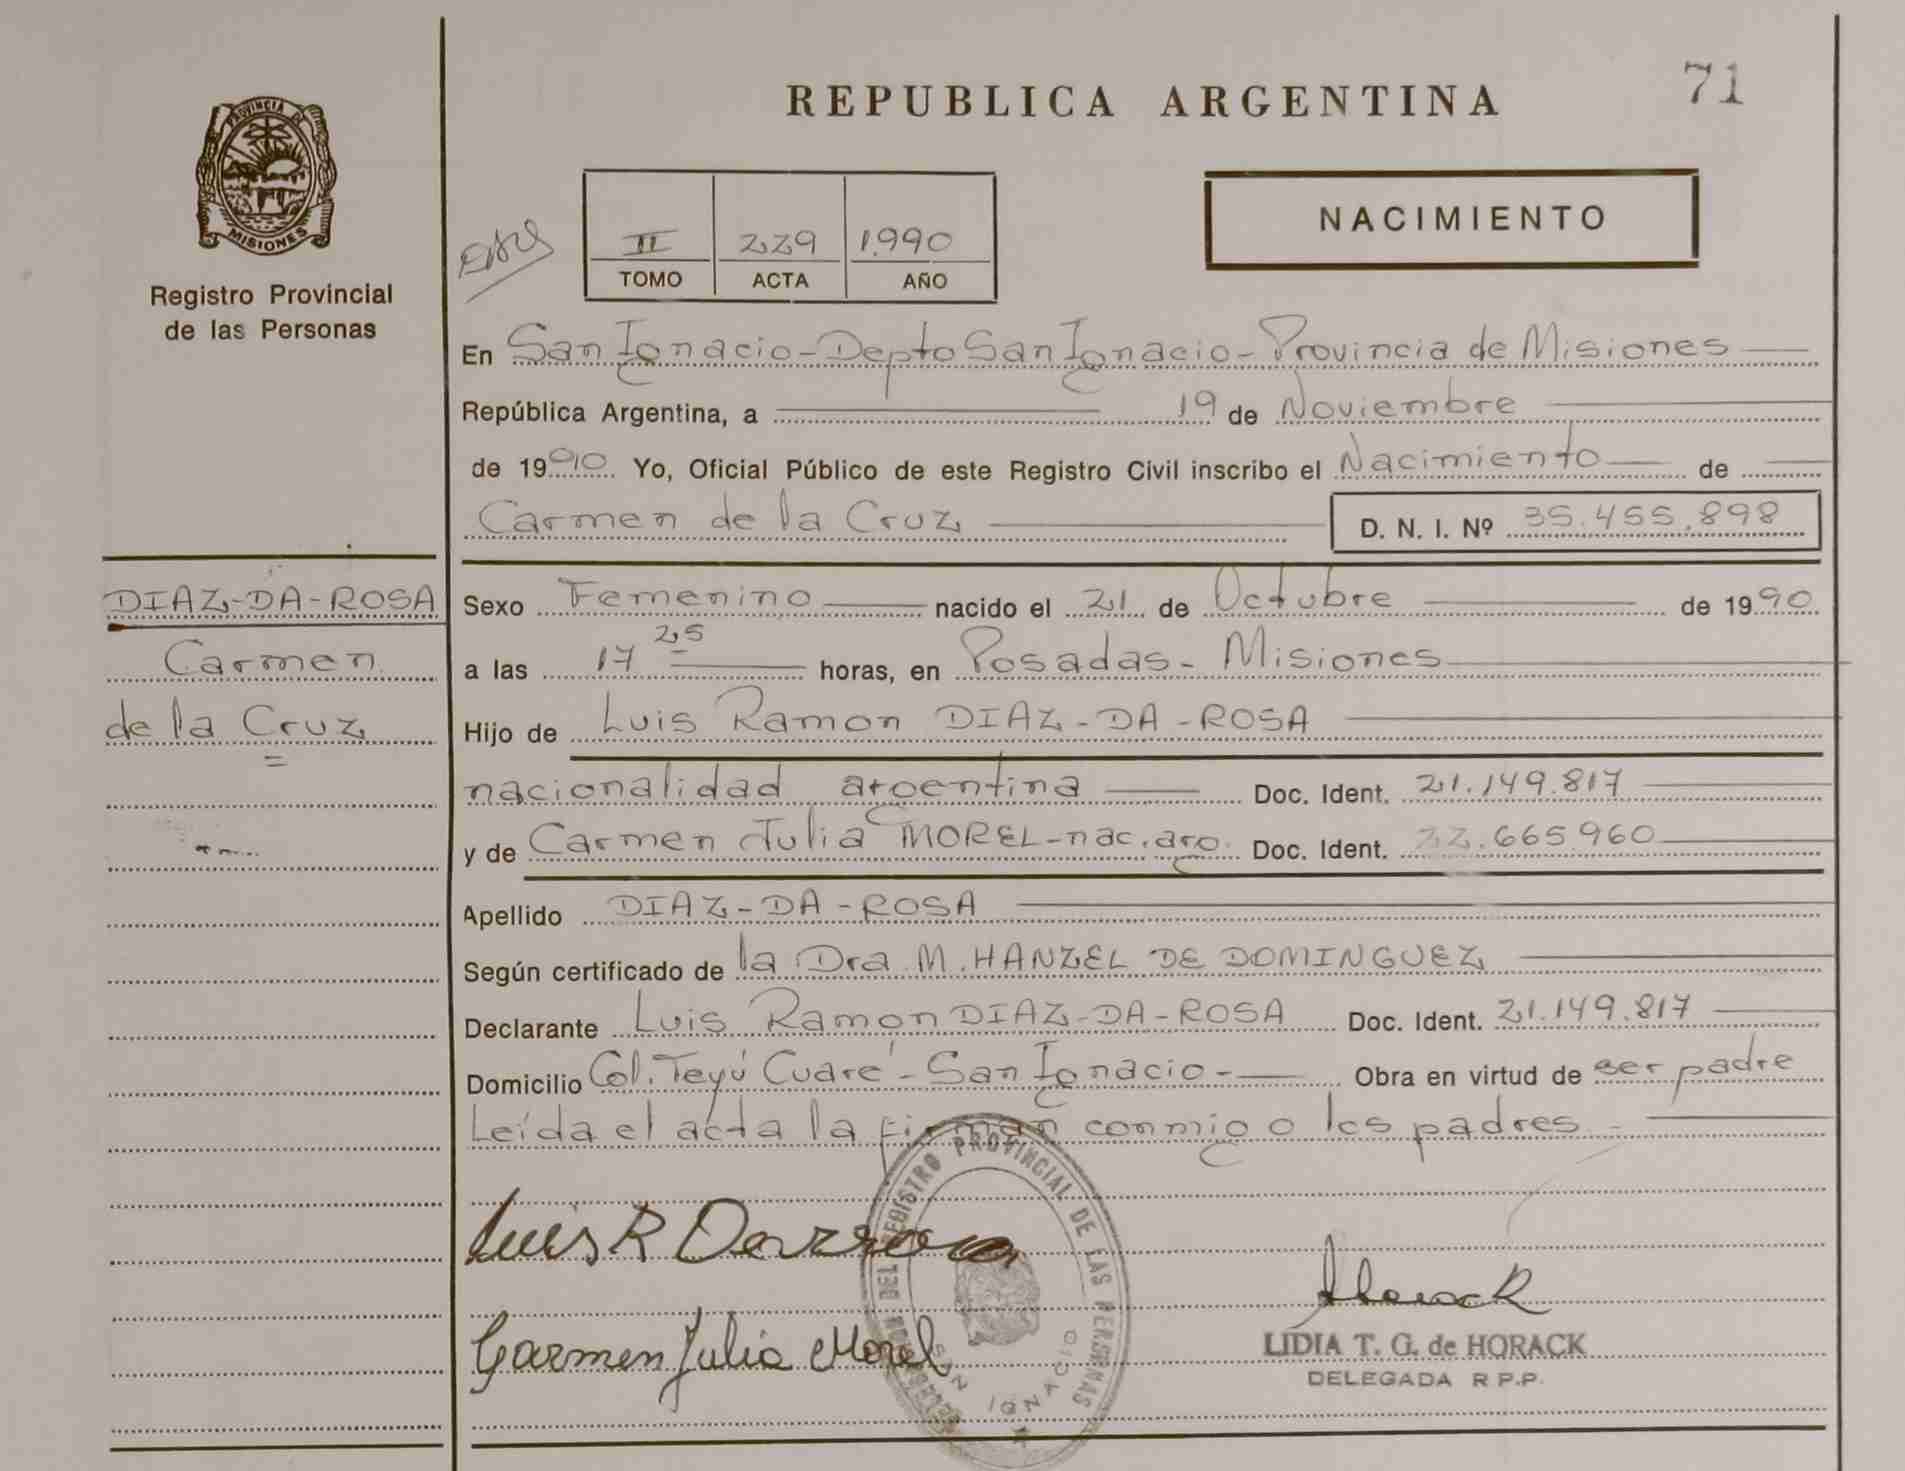 71
REPUBLICA ARGENTINA
PROVINCIA DE
MISIONES
Registro Provincial
de las Personas
II 229 1.990
TOMO ACTA AÑO
NACIMIENTO
En San Ignacio - Depto San Ignacio - Provincia de Misiones
República Argentina, a 19 de Noviembre
de 1990 Yo, Oficial Público de este Registro Civil inscribo el Nacimiento de
Carmen de la Cruz D. N. I. Nº 35.455.898
DIAZ-DA-ROSA
Carmen
de la Cruz
Sexo Femenino nacido el 21 de Octubre de 1990
a las 17 25 horas, en Posadas - Misiones
Hijo de Luis Ramon DIAZ-DA-ROSA
nacionalidad argentina Doc. Ident. 21.149.817
y de Carmen Julia MOREL - nac. arg. Doc. Ident. 22.665.960
Apellido DIAZ-DA-ROSA
Según certificado de la Dra M. HANZEL DE DOMINGUEZ
Declarante Luis Ramon DIAZ-DA-ROSA Doc. Ident. 21.149.817
Domicilio Col. Teyú Cuaré - San Ignacio - Obra en virtud de ser padre
Leída el acta la firman conmigo los padres
Luis R Darrosa
Carmen Julia Morel
Horack
LIDIA T. G. de HORACK
DELEGADA R.P.P.
DEL REGISTRO PROVINCIAL DE LAS PERSONAS
SAN IGNACIO